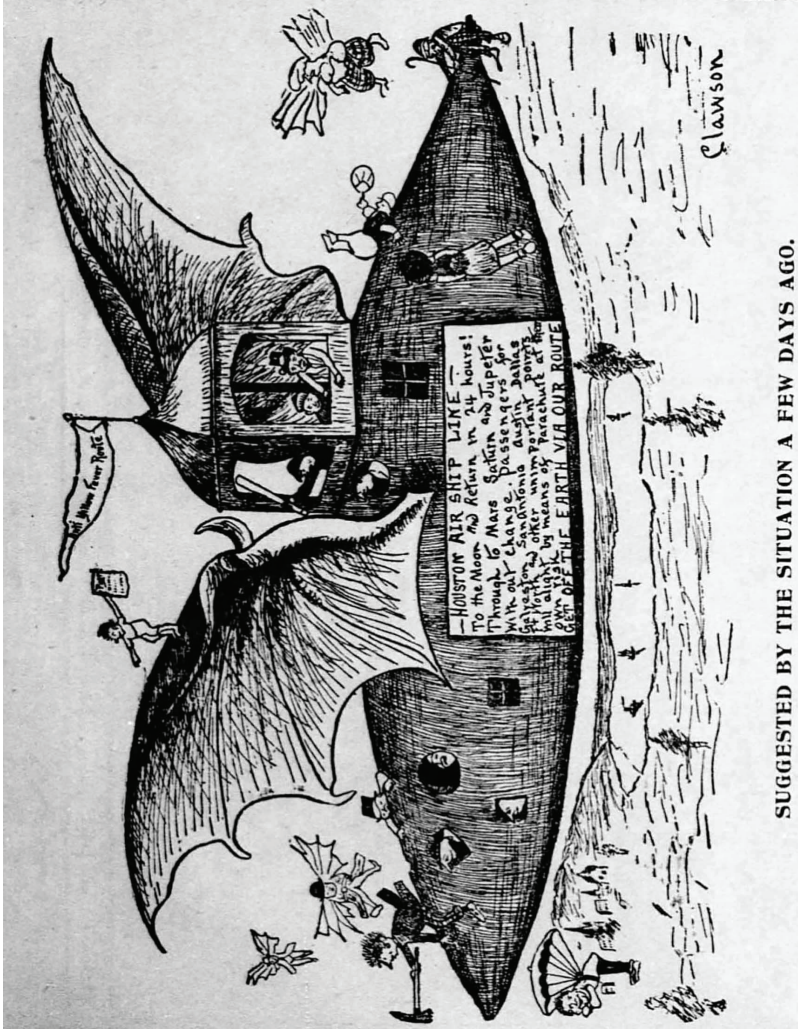 Yellow Fever Route
—HOUSTON AIR SHIP LINE—
To the Moon and Return in 24 hours!
Through to Mars Saturn and Jupeter
With out change. Passengers for
Galveston Sanantonio Austin Dallas
Ft Worth and other unimportant points
will alight by means of Parachute at their
own risk.
GET OFF THE EARTH VIA OUR ROUTE
Clawson
SUGGESTED BY THE SITUATION A FEW DAYS AGO.